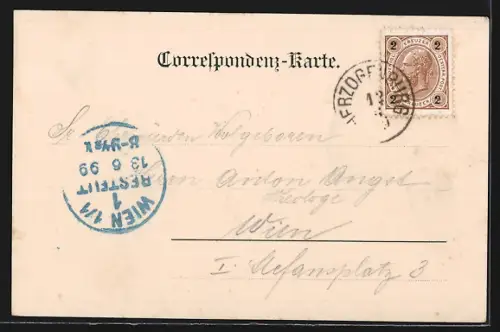 Correspondenz-Karte.
2 KREUZER 2
2 2
HERZOGENBURG
12
Hochgeboren
Herrn Anton Angst
Theologe
Wien
I. Stefansplatz 3
WIEN 1/1
1
BESTELLT
13 6 99
8-9½V